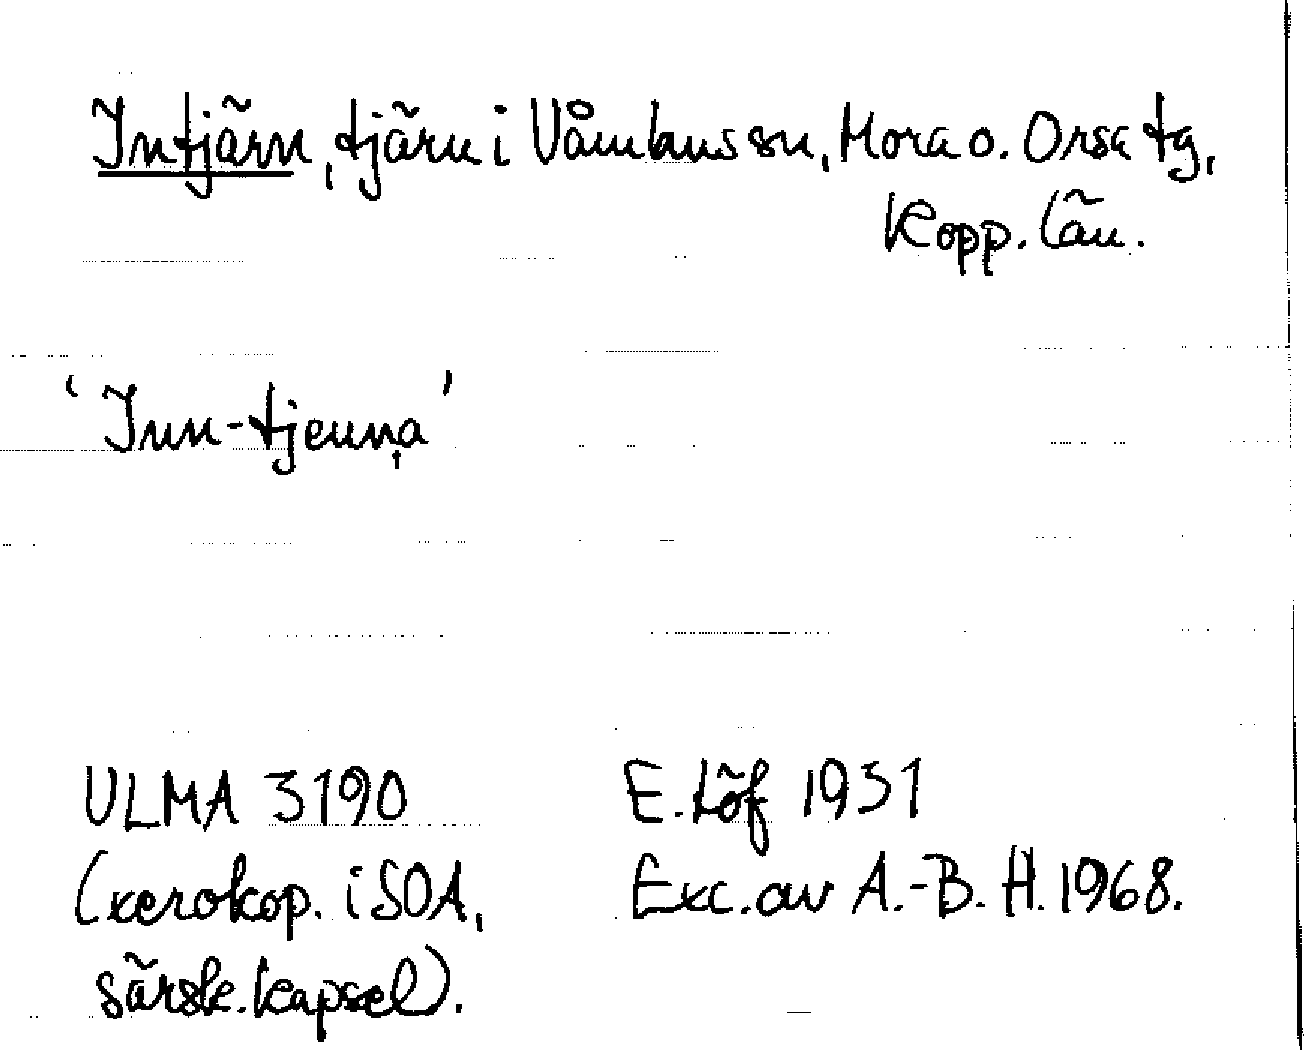 Intjärn, tjärn i Våmhus sn, Mora o. Orsa tg,
Kopp. län.
'Inn-tjenṇa'
ULMA 3190
(xerokop. i SOA,
särsk. kapsel).
E. Löf 1931
Exc. av A.-B. H. 1968.